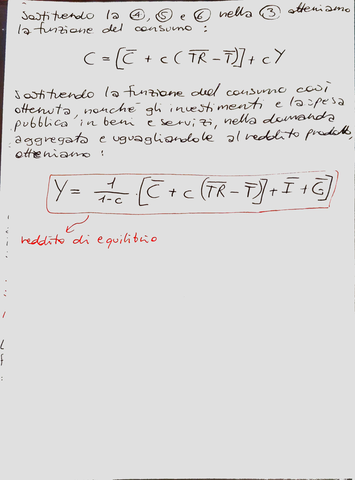 Sostituendo la ④, ⑤ e ⑥ nella ③ otteniamo
la funzione del consumo :
C = [C̅ + c (T̅R̅ - T̅)] + cY
Sostituendo la funzione del consumo così
ottenuta, nonché gli investimenti e la spesa
pubblica in beni e servizi, nella domanda
aggregata e uguagliandole al reddito prodotto,
otteniamo :
Y = 1/1-c · [C̅ + c (T̅R̅ - T̅)] + I̅ + G̅]
reddito di equilibrio